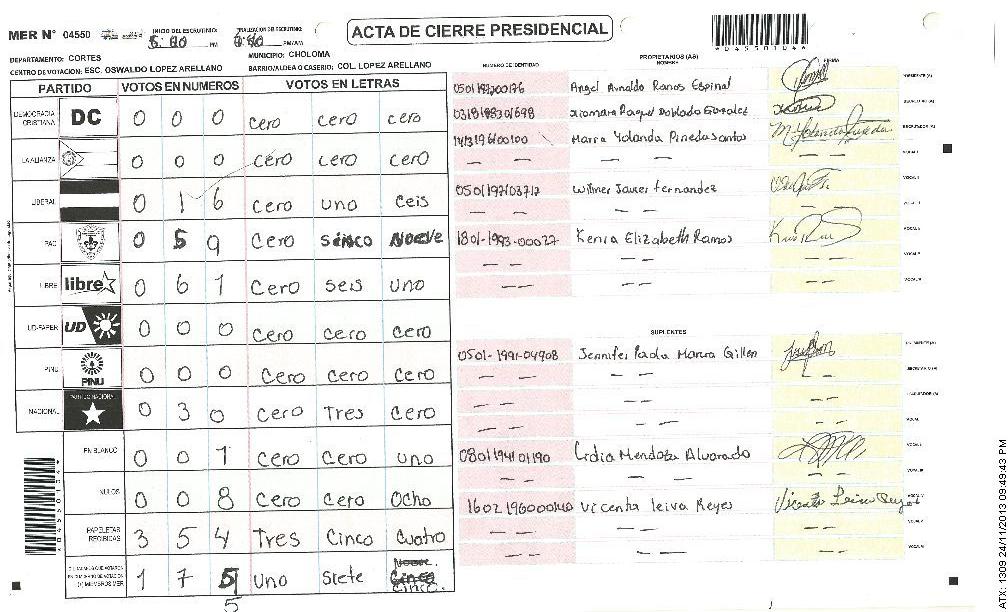 MER N° 04550
INICIO DEL ESCRUTINIO:
PM
PM/AM
ACTA DE CIERRE PRESIDENCIAL
*04550104*
DEPARTAMENTO: CORTES
MUNICIPIO: CHOLOMA
CENTRO DE VOTACION: ESC. OSWALDO LOPEZ ARELLANO
BARRIO/ALDEA O CASERIO: COL. LOPEZ ARELLANO
PARTIDO VOTOS EN NUMEROS VOTOS EN LETRAS
NUMERO DE IDENTIDAD PROPIETARIOS (AS) NOMBRE FIRMA
DEMOCRACIA CRISTIANA DC 0 0 0 cero cero cero
LA ALIANZA 0 0 0 cero cero cero
LIBERAL 0 1 6 cero uno ceis
PAC 0 5 9 Cero sinco Noeve
LIBRE libre 0 6 1 Cero seis uno
UD-FAPER UD 0 0 0 Cero cero cero
PINU PINU 0 0 0 Cero Cero Cero
NACIONAL PARTIDO NACIONAL 0 3 0 Cero Tres Cero
EN BLANCO 0 0 1 Cero Cero uno
NULOS 0 0 8 Cero Cero Ocho
PAPELETAS RECIBIDAS 3 5 4 Tres Cinco Cuatro
1 7 5 Uno Siete Cinco.
5
Angel Arnaldo Ramos Espinal
0318198301698 Xiomara Raquel Doblado Gonzalez
Maria Yolanda Pineda Santos
Wilmer Javier Fernandez
1801-1993-00027 Kenia Elizabeth Ramos
SUPLENTES
0501-1991-04908 Jennifer Paola Gillen
Lidia Mendoza Alvarado
Vicenta leiva Reyes
*04550104*
ATX: 1309 24/11/2013 09:49:43 PM